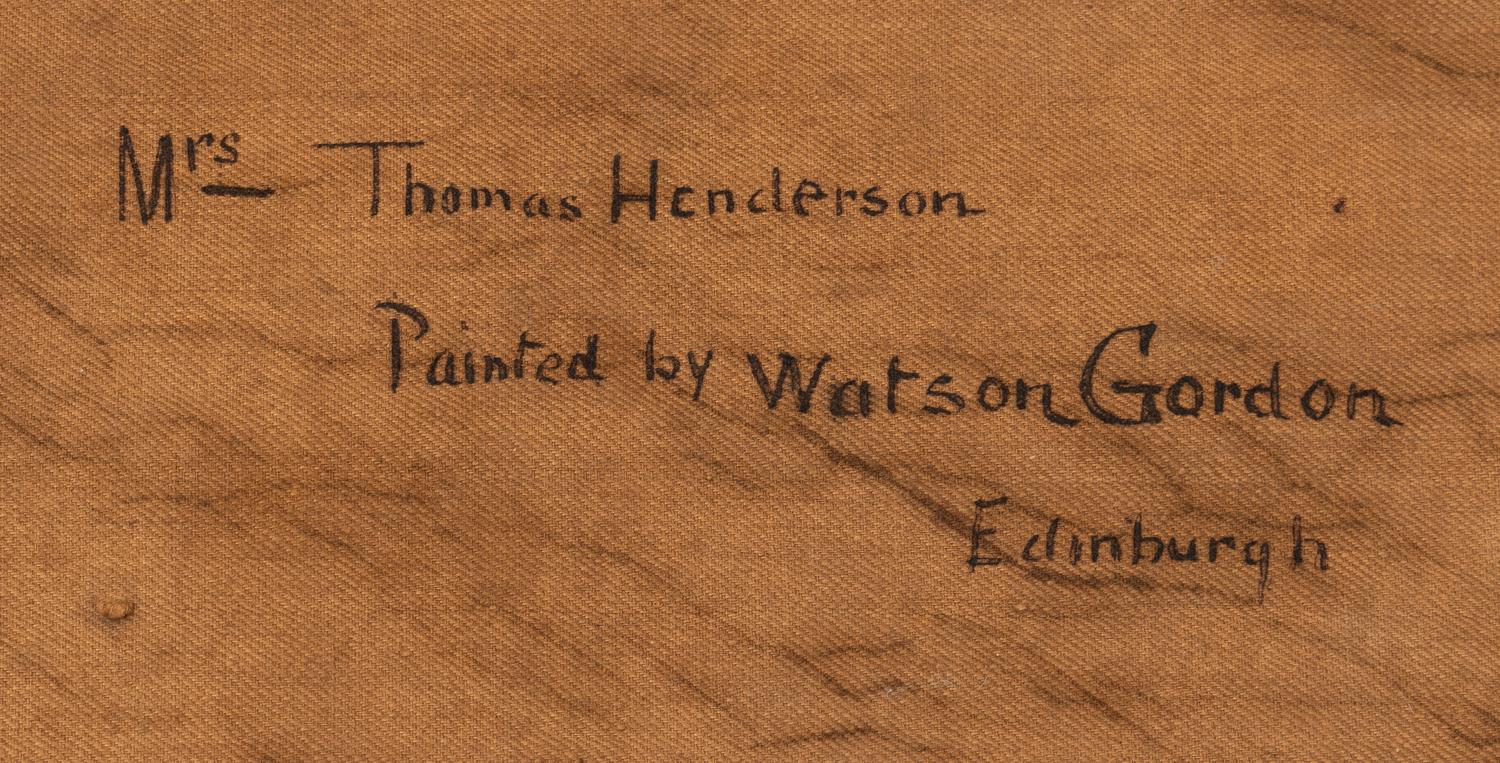 Mrs Thomas Henderson
Painted by Watson Gordon
Edinburgh